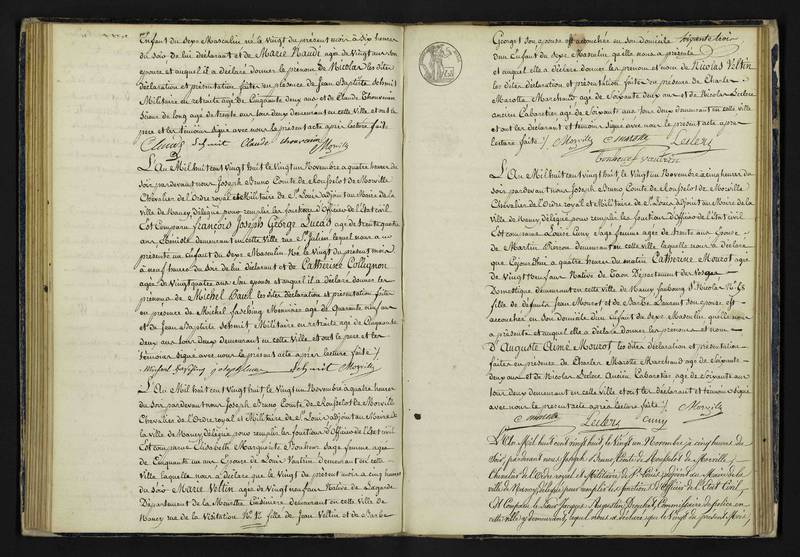 Enfant du sexe Masculin né le vingt du présent mois à six heures
du soir de lui déclarant et de Marie Naudé agée de vingt un ans son
épouse et auquel il a déclaré donner le prénom de Nicolas les dites
déclaration et présentation faites en présence de Jean Baptiste Schmit
Militaire en retraite agé de Cinquante deux ans et de Claude Thouvenin
agé de trente sur tous deux demeurant en cette ville et ont le
père et les témoins signé avec nous le présent acte après lecture faite
Schmit Claude thouvenin Morville
L'An Mil huit cent vingt huit le vingt un Novembre à quatre heures du
soir pardevant nous Joseph Bruno Comte de Rousselot de Morville
Chevalier de l'Ordre royal et Militaire de St Louis adjoint au Maire de la
ville de Nancy délégué pour remplir les fonctions d'Officier de l'Etat civil
Est Comparu François Joseph George Lucas agé de trente quatre
ans Ebéniste demeurant en cette ville rue St Julien lequel nous a
présenté un Enfant du sexe Masculin Né le vingt du présent mois
à neuf heures du soir de lui déclarant et de Catherine Collignon
agée de vingt quatre ans son épouse et auquel il a déclaré donner les
prénoms de Michel Paul les dites déclaration et présentation faites
en présence de Michel Fasbing Menuisier agé de Quarante ans
et de Jean Baptiste Schmit Militaire en retraite agé de Cinquante
deux ans tous deux demeurant en cette ville et ont le père et les
témoins signé avec nous le présent acte après lecture faite /
Schmit Morville
L'An Mil huit cent vingt huit le vingt un Novembre à quatre heures
du soir pardevant nous Joseph Bruno Comte de Rousselot de Morville
Chevalier de l'Ordre royal et Militaire de St Louis adjoint au Maire de
la ville de Nancy délégué pour remplir les fonctions d'Officier de l'Etat civil
Est comparue Elisabeth Marguerite Bonheur Sage femme agée
de Cinquante un ans Epouse de Louis Vautrin demeurant en cette
ville laquelle nous a déclaré que le vingt du présent mois à cinq heures
du soir Marie Veltin agée de vingt neuf ans Native de Lagarde
Département de la Meurthe demeurant en cette ville de
Nancy rue de la Visitation No 12 fille de Jean Veltin et de Barbe
George son épouse est accouchée en son domicile
d'un Enfant du sexe Masculin qu'elle nous a présenté
et auquel elle a déclaré donner les prénom et nom de Nicolas Veltin
les dites déclaration et présentation faites en présence de Charles
Marotte Marchand agé de Soixante deux ans et de Nicolas Leclerc
ancien Cabaretier agé de Soixante ans tous deux demeurant en cette ville
et ont les déclarant et témoins signé avec nous le présent acte après
lecture faite / Morville Marotte Leclerc
bonheur f vautrin
L'An Mil huit cent vingt huit, le vingt un Novembre à cinq heures du
soir pardevant nous Joseph Bruno Comte de Rousselot de Morville
Chevalier de l'Ordre royal et Militaire de St Louis adjoint au Maire de la
ville de Nancy délégué pour remplir les fonctions d'Officier de l'Etat civil
Est comparue Louise Cuny Sage femme agée de trente ans Epouse
de Martin Pierron demeurant en cette ville laquelle nous a déclaré
que Cejourd'hui à quatre heures du matin Catherine Mourot agée
de vingt neuf ans Native de Taon Département des Vosges
Domestique demeurant en cette ville de Nancy faubourg St Nicolas No 68
fille de défunts Jean Mourot et de Barbe Laurent son épouse est
accouchée en son domicile d'un Enfant du sexe Masculin qu'elle nous
a présenté et auquel elle a déclaré donner les prénoms et nom
D'Auguste Aimé Mourot les dites déclaration et présentation
faites en présence de Charles Marotte Marchand agé de Soixante
deux ans et de Nicolas Leclerc Ancien Cabaretier agé de Soixante ans
tous deux demeurant en cette ville et ont les déclarant et témoins signé
avec nous le présent acte après lecture faite / Morville
Marotte Leclerc Cuny
L'An Mil huit cent vingt huit, le vingt un Novembre à cinq heures du
soir, pardevant nous Joseph Bruno, Comte de Rousselot de Morville,
Chevalier de l'Ordre royal et Militaire de St Louis, adjoint au Maire de la
ville de Nancy, délégué pour remplir les fonctions d'Officier de l'Etat Civil,
Est Comparu le Sieur Jacques Augustin Commissaire de Police en
cette ville y demeurant, lequel nous a déclaré que le vingt du présent mois,